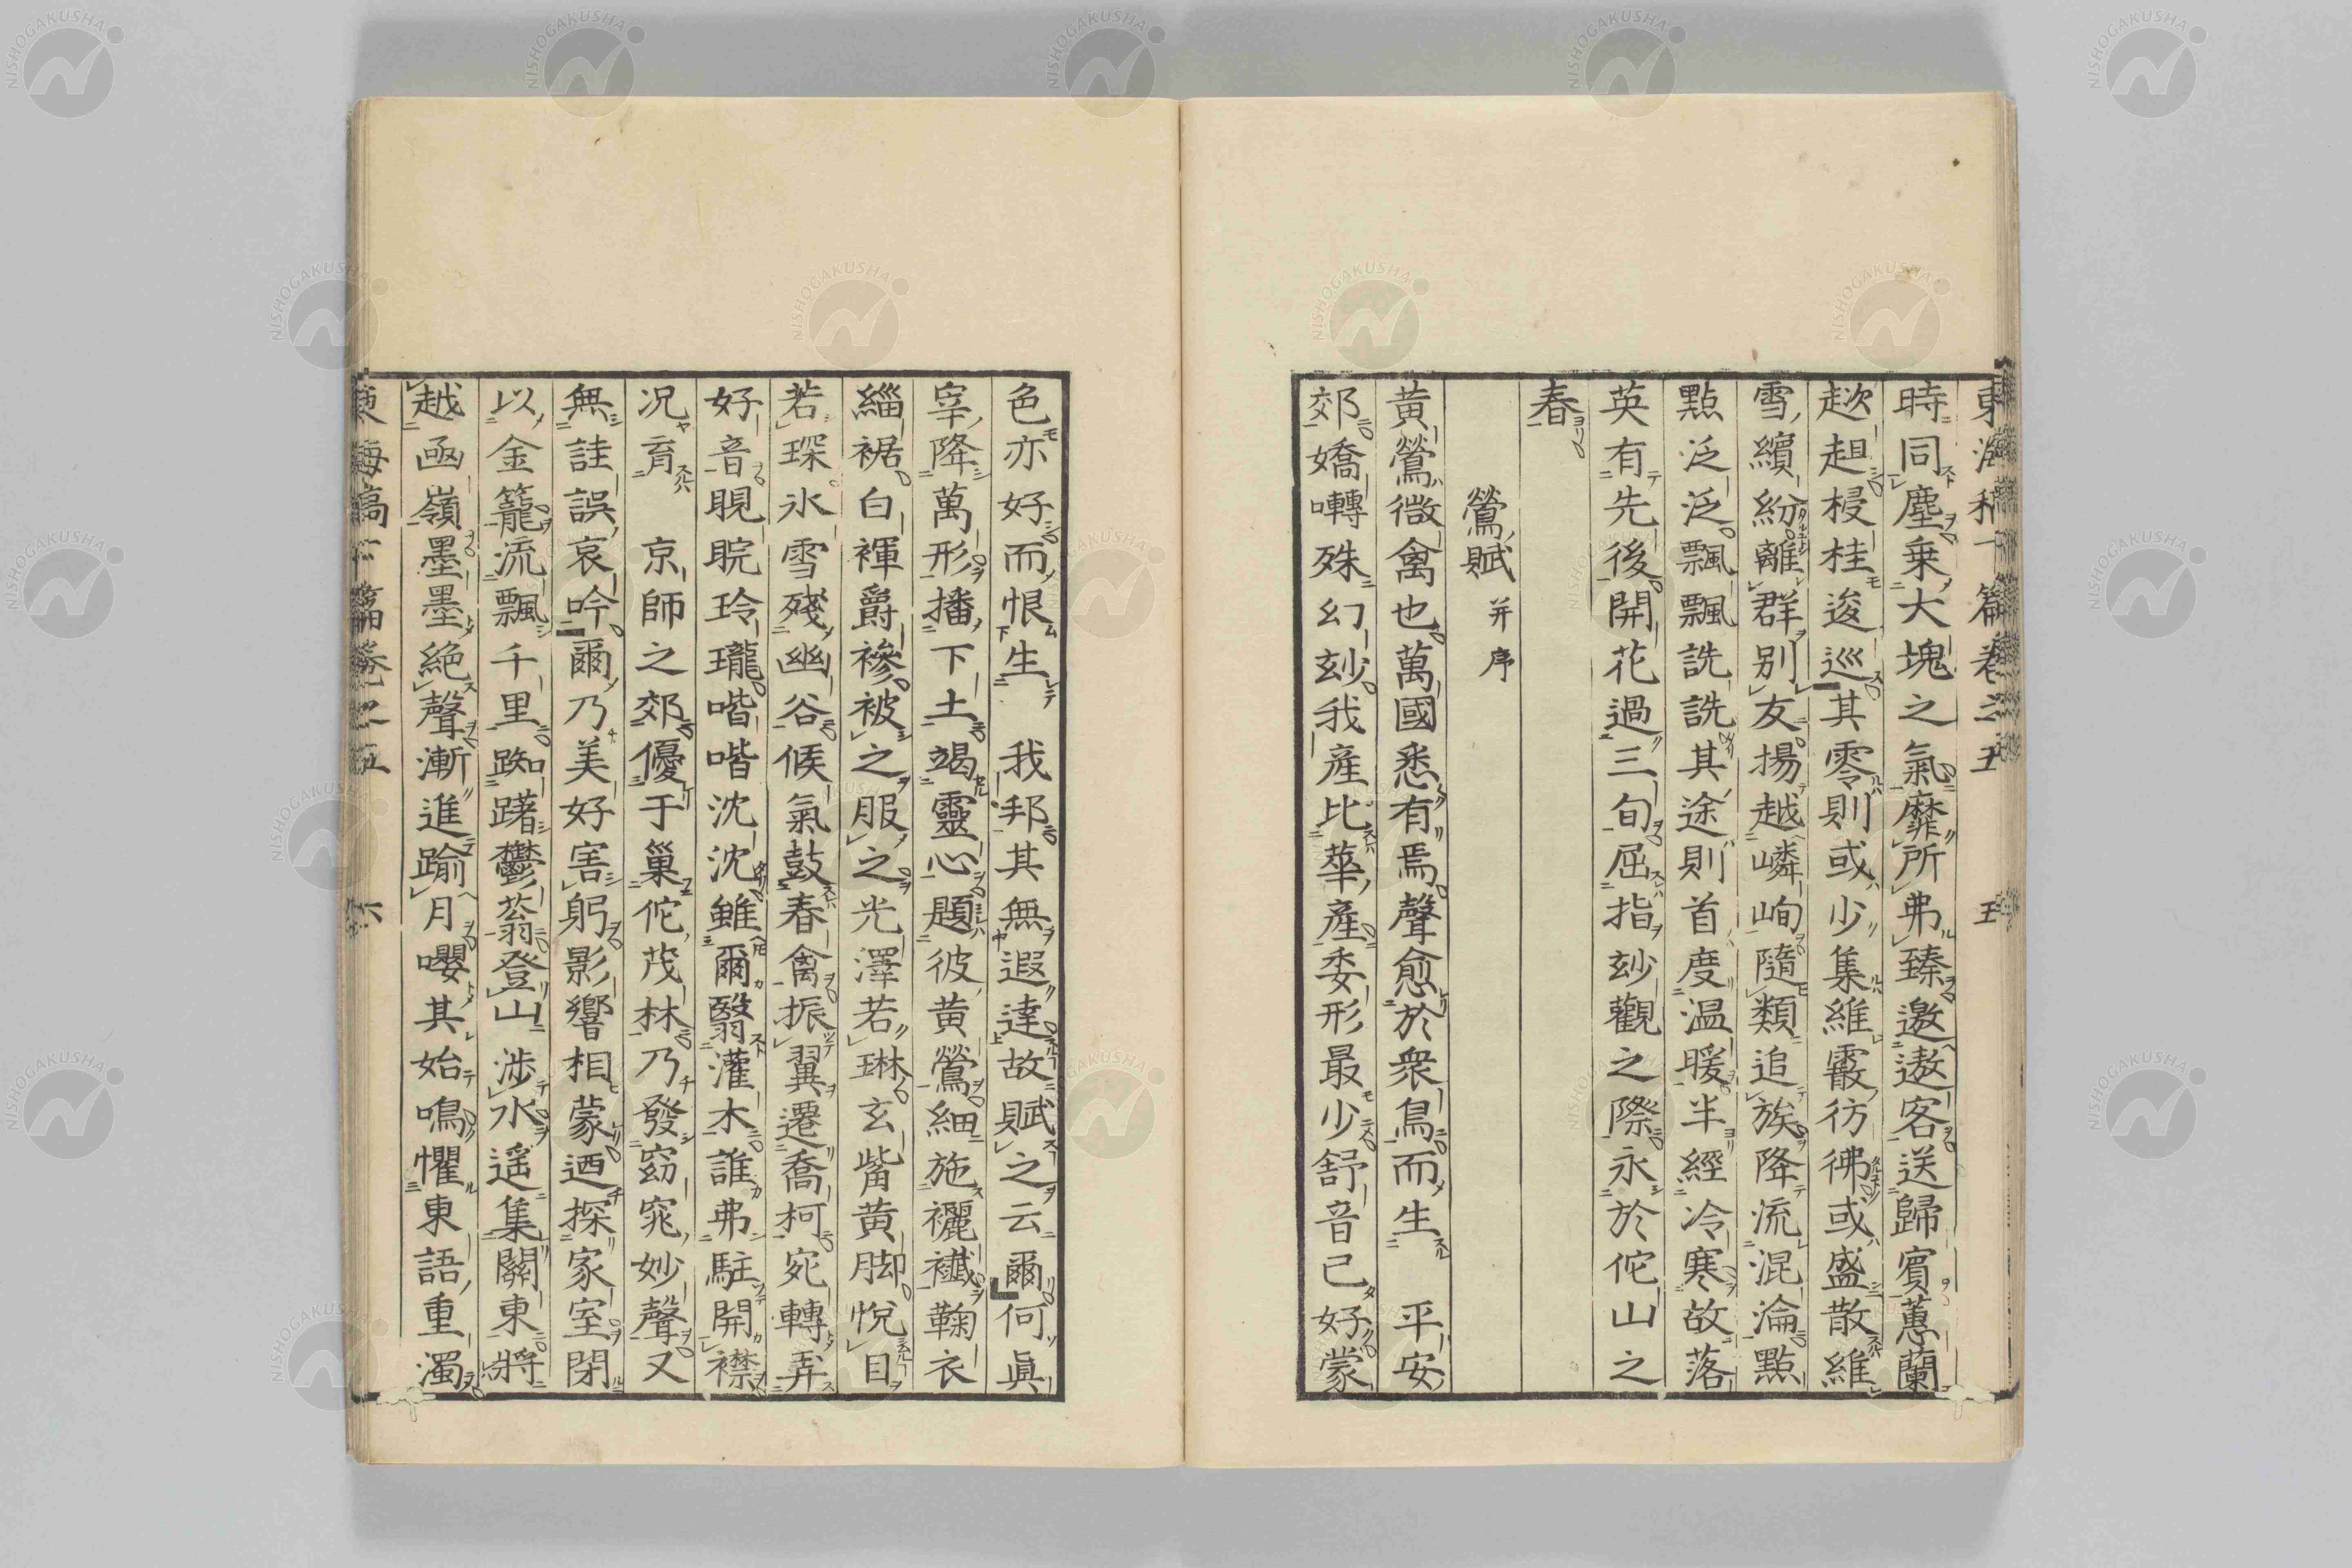 東海稿一篇卷之五　五
時同塵乗大塊之氣靡所弗臻邀遨客送歸賓蕙蘭
趑趄梫桂逡巡其零則或少集維霰彷彿或盛散維
雪繽紛離群别友揚越嶙峋隨類追族降流混淪點
點泛泛飄飄詵詵其途則首度温暖半經冷寒故落
英有先後開花過三旬屈指玅觀之際永於佗山之
春
鶯賦 并序
黃鶯微禽也萬國悉有焉聲愈於衆鳥而生　平安
郊嬌囀殊幻玅我産比華産委形最少舒音已好蒙
色亦好而恨生　我邦其無遐達故賦之云爾何眞
宰降萬形播下土竭靈心題彼黄鶯細施襹襳鞠衣
緇裾白褌爵襂被之服之光澤若琳玄觜黄脚悅目
若琛氷雪殘幽谷候氣鼓春禽振翼遷喬柯宛轉弄
好音睍睆玲瓏喈喈沈沈雖爾翳灌木誰弗駐開襟
况育　京師之郊優于巢佗茂林乃發窈窕妙聲又
無詿誤哀吟爾乃美好害躬影響相蒙迺探家室閉
以金籠流飄千里踟躇鬱蓊登山涉水遥集關東將
越凾嶺墨墨絶聲漸進踰月嚶其始鳴懼東語重濁
東海稿一篇卷之五　六